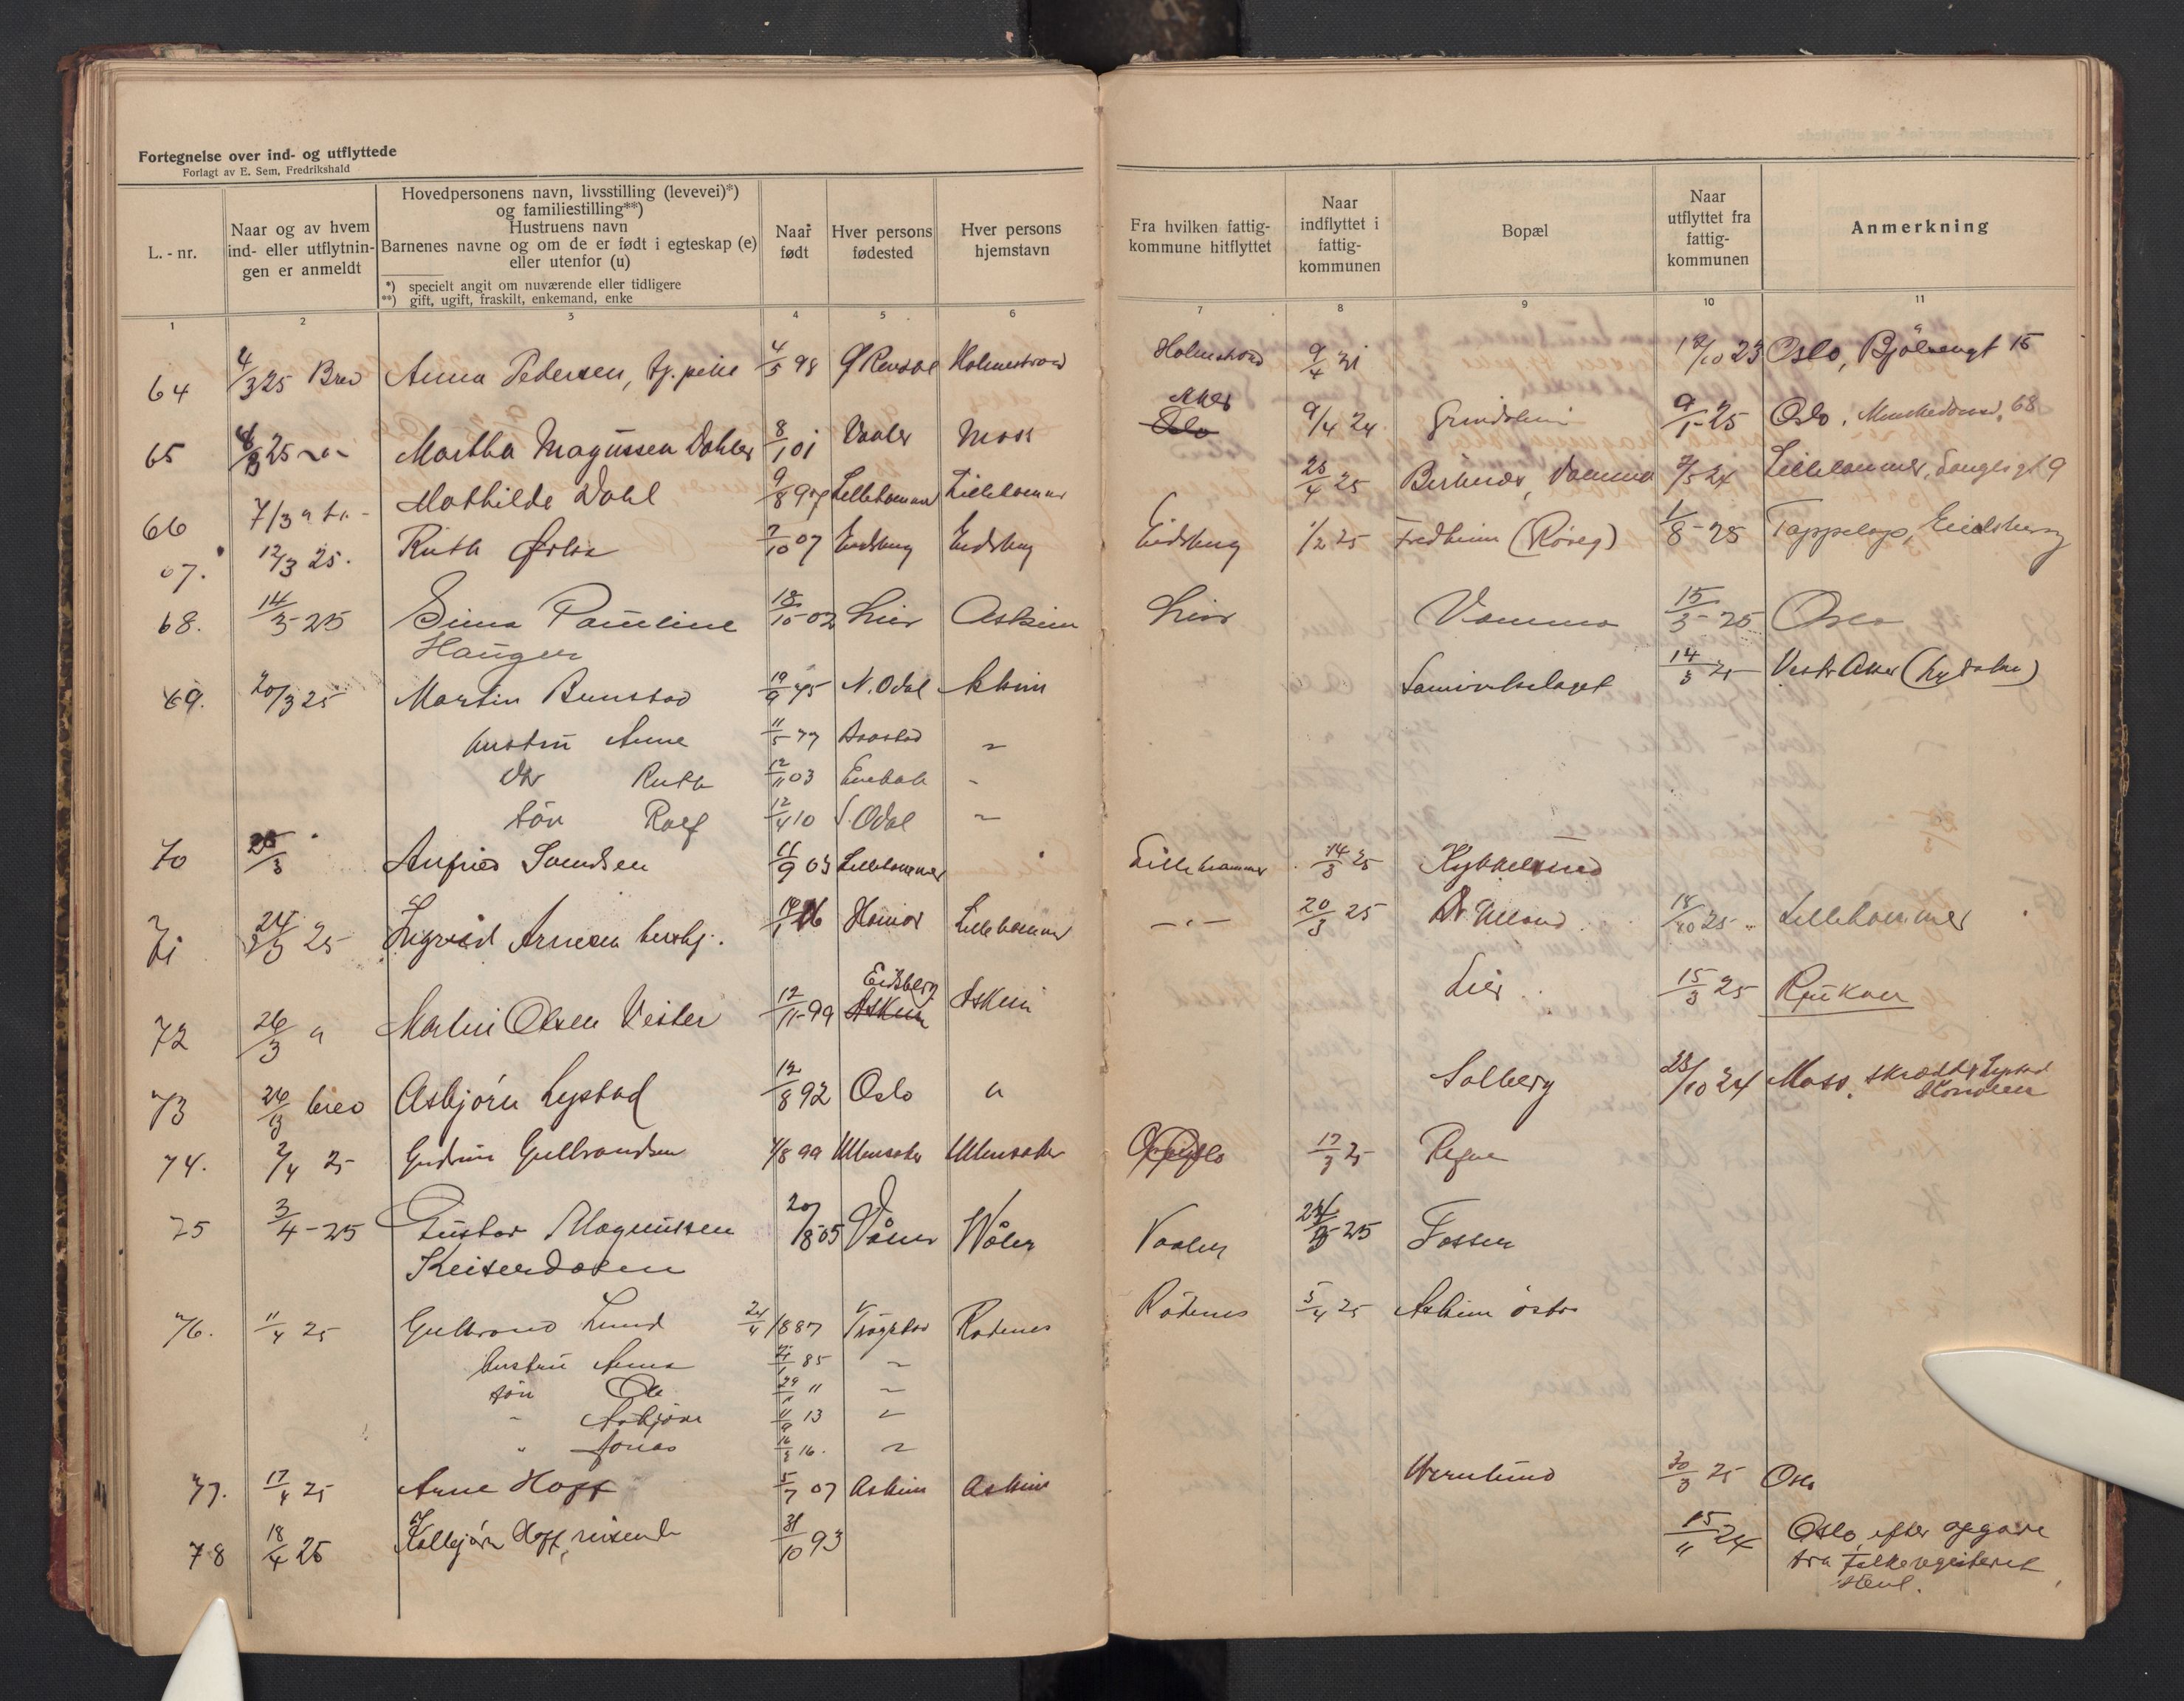 Fortegnelse over ind- og utflyttede
Forlagt av E. Sem, Fredrikshald
L. - nr.
Naar og av hvem ind- eller utflytnin- gen er anmeldt
Hovedpersonens navn, livsstilling (levevei)*)
og familiestilling**)
Hustruens navn
Barnenes navne og om de er født i egteskap (e)
eller utenfor (u)
*) specielt angit om nuværende eller tidligere
**) gift, ugift, fraskilt, enkemand, enke
Naar født
Hver persons fødested
Hver persons hjemstavn
Fra hvilken fattig- kommune hitflyttet
Naar indflyttet i fattig- kommunen
Bopæl
Naar utflyttet fra fattig- kommunen
Anmerkning
1 2 3 4 5 6 7 8 9 10 11
64 4/3 25 Brev Anna Pedersen, tj. pike 4/5 98 Holmestrand Holmestrand 9/4 21 12/10 23 Oslo, 15
65 25 Martha Magnussen Dahler 8/1 01 Vaaler Moss Aker Oslo 9/4 24 Grindheim 9/1-25 Oslo, 68
66 7/3 Mathilde Dahl 9/8 Lillehammer Lillehammer 25/4 25 Vamma 7/5 24 Lillehammer, 9
67. 12/3 25. Ruth 7/10 07 Eidsberg Eidsberg Eidsberg 1/2 25 Fredheim 1/8-25 Eidsberg
68. 14/3-25 Pauline 18/10 02 Lier Askim Lier Vamma 15/3-25 Oslo
Haugen
69. 20/3 25 Martin 19/9 N. Odal Askim Samvirkelaget 14/3 25 Vestre Aker
hustru Anne 11/5 77
dtr Ruth 12/11 03 Enebak -
søn Rolf 12/4 10 S. Odal
70 25/3 Anfred 11/9 03 Lillehammer Lillehammer 14/3 25 Kykkelsrud
71 24/3 25 Ingvald Arnesen 16 Hamar Lillehammer -"- 20/3 25 18/10 25 Lillehammer
72 26/3 " Martin Olsen Vester 12/11-99 Eidsberg Askim Askim Lier 15/3 25 Rjukan
73 26/3 brev Asbjørn Lystad 12/8 92 Oslo " Solberg 23/10 24 Moss, Lystad
74. 2/4 25 Gudrun Gulbrandsen 1/8 99 Ullensaker Ullensaker Oslo 17/3 25
75 3/4-25 Gustav Magnussen 20/8 05 Våler Våler Vaaler 25 Fossen
Keiserdalen
76. 11/4 25 Gulbrand Lund 24/4 1887 Trøgstad Rødenes Rødenes 5/4 25 Askim østre
hustru Anna 85 "
søn Ole 29 11 "
" Asbjørn 11/9 13 "
" Jonas 16/3 16. "
77. 17/4 25 Arne Hoff 5/7 07 Askim Askim 30/3 25 Oslo
78 18/4 25 Kolbjørn Hoff, reisende 31/10 93 15/11 24 Oslo, efter opgave
fra folkeregisteret